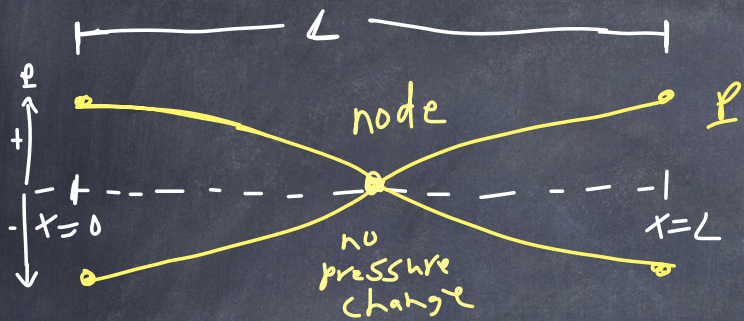 L
P
node
P
+
-
x=0
x=L
no
pressure
change